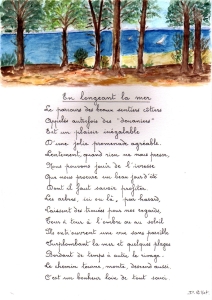 En longeant la mer
Le parcours des beaux sentiers côtiers
Appelés autrefois des "douaniers"
Est un plaisir inégalable
D'une jolie promenade agréable.
Lentement, quand rien ne nous presse,
Nous pouvons jouir de l'ivresse
Que nous procure un beau jour d'été
Dont il faut savoir profiter
Les arbres, ici ou là, par hasard,
Laissent des trouées pour nos regards,
Tour à tour à l'ombre ou au soleil
Ils ont ouvert une vue sans pareille
Surplombant la mer et quelques plages
Bordant de temps à autre, le rivage.
Le chemin tourne, monte, descend aussi,
C'est un bonheur loin de tout souci.